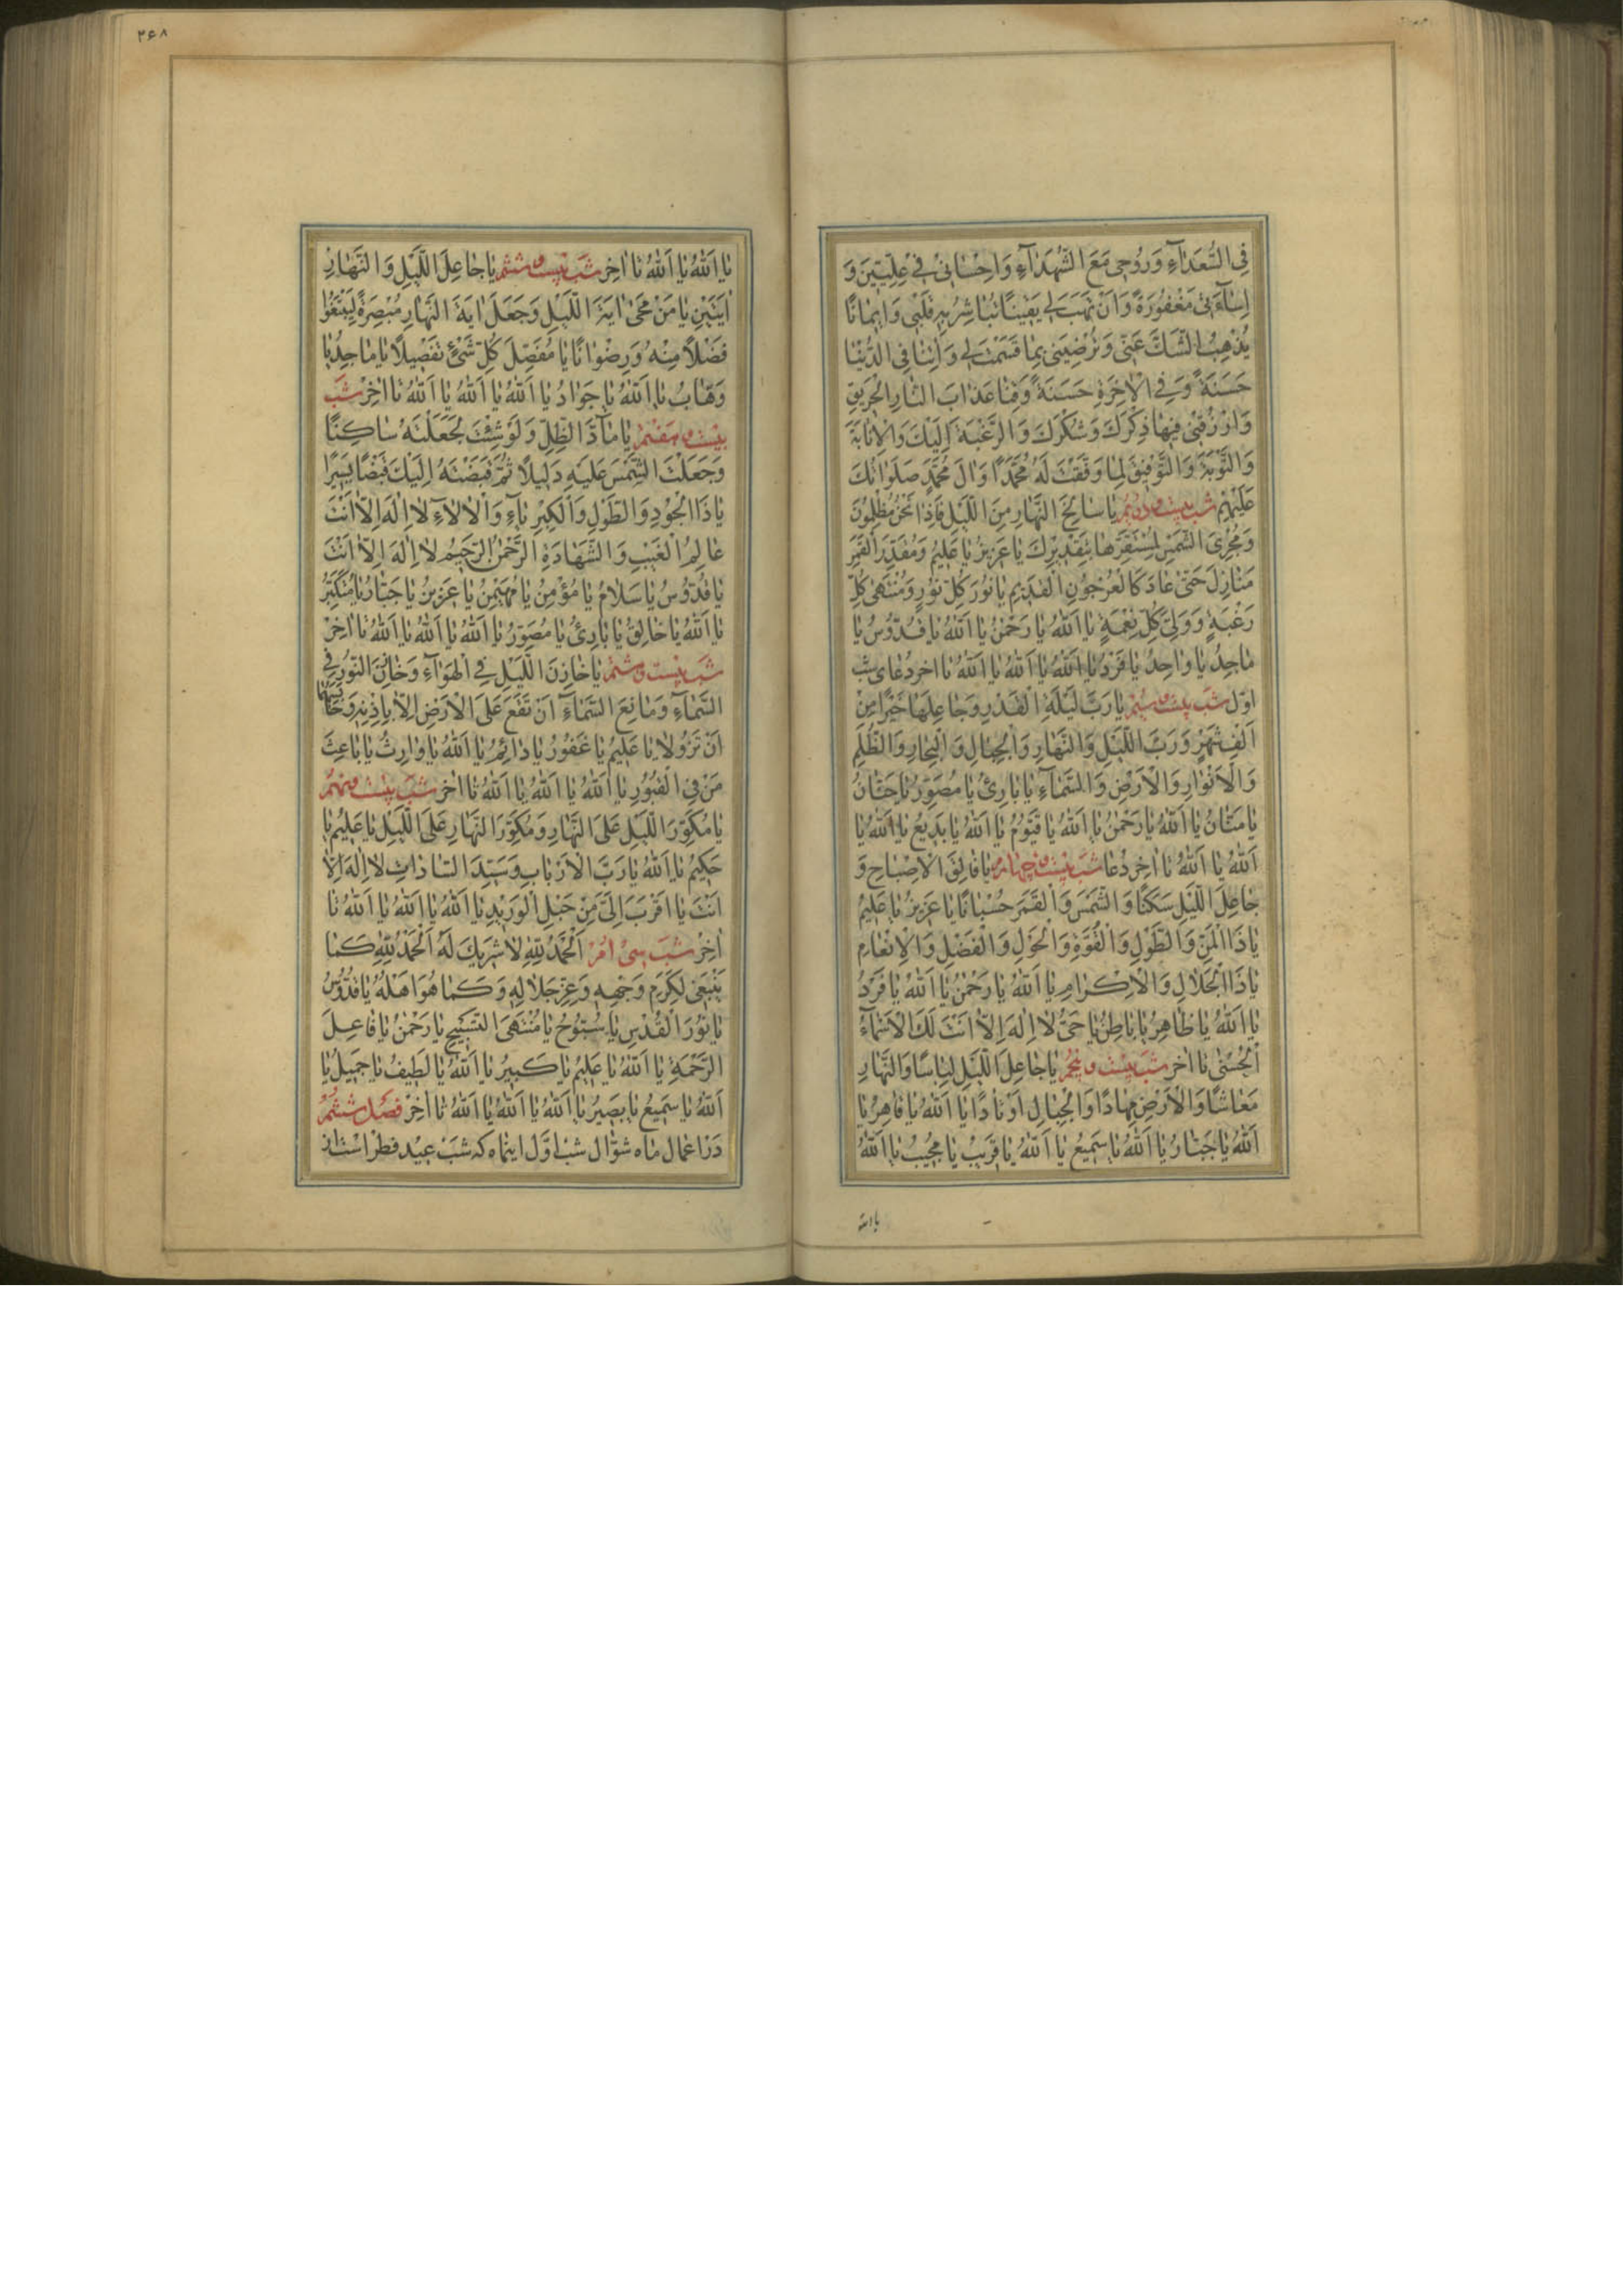 فِي السُّعَدَاءِ وَرُوحِي مَعَ الشُّهَدَاءِ وَاِحْسَانِي فِي عِلِّيِّينَ وَ
اِسَاءَتِي مَغْفُورَةً وَاَنْ تَهَبَ لِي يَقِينًا تُبَاشِرُ بِهِ قَلْبِي وَاِيمَانًا
يُذْهِبُ الشَّكَّ عَنِّي وَتُرْضِيَنِي بِمَا قَسَمْتَ لِي وَاٰتِنَا فِي الدُّنْيَا
حَسَنَةً وَفِي الْاٰخِرَةِ حَسَنَةً وَقِنَا عَذَابَ النَّارِ الْحَرِيقِ
وَارْزُقْنِي فِيهَا ذِكْرَكَ وَشُكْرَكَ وَالرَّغْبَةَ اِلَيْكَ وَالْاِنَابَةَ
وَالتَّوْبَةَ وَالتَّوْفِيقَ لِمَا وَفَّقْتَ لَهُ مُحَمَّدًا وَاٰلَ مُحَمَّدٍ صَلَوَاتُكَ
عَلَيْهِمْ شب بیست و دویم يَا سَالِخَ النَّهَارِ مِنَ اللَّيْلِ فَاِذَا نَحْنُ مُظْلِمُونَ
وَمُجْرِيَ الشَّمْسِ لِمُسْتَقَرِّهَا بِتَقْدِيرِكَ يَا عَزِيزُ يَا عَلِيمُ وَمُقَدِّرَ الْقَمَرِ
مَنَازِلَ حَتّٰى عَادَ كَالْعُرْجُونِ الْقَدِيمِ يَا نُورَ كُلِّ نُورٍ وَمُنْتَهٰى كُلِّ
رَغْبَةٍ وَوَلِيَّ كُلِّ نِعْمَةٍ يَا اَللّٰهُ يَا رَحْمٰنُ يَا اَللّٰهُ يَا قُدُّوسُ يَا
مَاجِدُ يَا وَاحِدُ يَا فَرْدُ يَا اَللّٰهُ يَا اَللّٰهُ يَا اَللّٰهُ تا اخر دعای شب
اول شب بیست و سیم يَا رَبَّ لَيْلَةِ الْقَدْرِ وَجَاعِلَهَا خَيْرًا مِنْ
اَلْفِ شَهْرٍ وَرَبَّ اللَّيْلِ وَالنَّهَارِ وَالْجِبَالِ وَالْبِحَارِ وَالظُّلَمِ
وَالْاَنْوَارِ وَالْاَرْضِ وَالسَّمَاءِ يَا بَارِئُ يَا مُصَوِّرُ يَا حَنَّانُ
يَا مَنَّانُ يَا اَللّٰهُ يَا رَحْمٰنُ يَا اَللّٰهُ يَا قَيُّومُ يَا اَللّٰهُ يَا بَدِيعُ يَا اَللّٰهُ يَا
اَللّٰهُ يَا اَللّٰهُ تا اخر دعا شب بیست و چهارم يَا فَالِقَ الْاِصْبَاحِ وَ
جَاعِلَ اللَّيْلِ سَكَنًا وَالشَّمْسَ وَالْقَمَرَ حُسْبَانًا يَا عَزِيزُ يَا عَلِيمُ
يَا ذَا الْمَنِّ وَالطَّوْلِ وَالْقُوَّةِ وَالْحَوْلِ وَالْفَضْلِ وَالْاِنْعَامِ
يَا ذَا الْجَلَالِ وَالْاِكْرَامِ يَا اَللّٰهُ يَا رَحْمٰنُ يَا اَللّٰهُ يَا فَرْدُ
يَا اَللّٰهُ يَا ظَاهِرُ يَا بَاطِنُ يَا حَيُّ لَا اِلٰهَ اِلَّا اَنْتَ لَكَ الْاَسْمَاءُ
الْحُسْنٰى تا اخر شب بیست و پنجم يَا جَاعِلَ اللَّيْلِ لِبَاسًا وَالنَّهَارِ
مَعَاشًا وَالْاَرْضِ مِهَادًا وَالْجِبَالِ اَوْتَادًا يَا اَللّٰهُ يَا قَاهِرُ يَا
اَللّٰهُ يَا جَبَّارُ يَا اَللّٰهُ يَا سَمِيعُ يَا اَللّٰهُ يَا قَرِيبُ يَا مُجِيبُ يَا اَللّٰهُ
یا الله
۳۶۸
يَا اَللّٰهُ يَا اَللّٰهُ تا اخر شب بیست و ششم يَا جَاعِلَ اللَّيْلِ وَالنَّهَارِ
اٰيَتَيْنِ يَا مَنْ مَحٰى اٰيَةَ اللَّيْلِ وَجَعَلَ اٰيَةَ النَّهَارِ مُبْصِرَةً لِيَبْتَغُوا
فَضْلًا مِنْهُ وَرِضْوَانًا يَا مُفَصِّلَ كُلِّ شَيْءٍ تَفْصِيلًا يَا مَاجِدُ يَا
وَهَّابُ يَا اَللّٰهُ يَا جَوَادُ يَا اَللّٰهُ يَا اَللّٰهُ يَا اَللّٰهُ تا اخر شب
بیست و هفتم يَا مَادَّ الظِّلِّ وَلَوْ شِئْتَ لَجَعَلْتَهُ سَاكِنًا
وَجَعَلْتَ الشَّمْسَ عَلَيْهِ دَلِيلًا ثُمَّ قَبَضْتَهُ اِلَيْكَ قَبْضًا يَسِيرًا
يَا ذَا الْجُودِ وَالطَّوْلِ وَالْكِبْرِيَاءِ وَالْاٰلَاءِ لَا اِلٰهَ اِلَّا اَنْتَ
عَالِمُ الْغَيْبِ وَالشَّهَادَةِ الرَّحْمٰنُ الرَّحِيمُ لَا اِلٰهَ اِلَّا اَنْتَ
يَا قُدُّوسُ يَا سَلَامُ يَا مُؤْمِنُ يَا مُهَيْمِنُ يَا عَزِيزُ يَا جَبَّارُ يَا مُتَكَبِّرُ
يَا اَللّٰهُ يَا خَالِقُ يَا بَارِئُ يَا مُصَوِّرُ يَا اَللّٰهُ يَا اَللّٰهُ يَا اَللّٰهُ تا اخر
شب بیست و هشتم يَا خَازِنَ اللَّيْلِ فِي الْهَوَاءِ وَخَازِنَ النُّورِ فِي
السَّمَاءِ وَمَانِعَ السَّمَاءَ اَنْ تَقَعَ عَلَى الْاَرْضِ اِلَّا بِاِذْنِهِ وَحَابِسَهُمَا
اَنْ تَزُولَا يَا عَلِيمُ يَا غَفُورُ يَا دَائِمُ يَا اَللّٰهُ يَا وَارِثُ يَا بَاعِثَ
مَنْ فِي الْقُبُورِ يَا اَللّٰهُ يَا اَللّٰهُ يَا اَللّٰهُ تا اخر شب بیست و نهم
يَا مُكَوِّرَ اللَّيْلِ عَلَى النَّهَارِ وَمُكَوِّرَ النَّهَارِ عَلَى اللَّيْلِ يَا عَلِيمُ يَا
حَكِيمُ يَا اَللّٰهُ يَا رَبَّ الْاَرْبَابِ وَسَيِّدَ السَّادَاتِ لَا اِلٰهَ اِلَّا
اَنْتَ يَا اَقْرَبَ اِلَيَّ مِنْ حَبْلِ الْوَرِيدِ يَا اَللّٰهُ يَا اَللّٰهُ يَا اَللّٰهُ تا
اخر شب سی ام اَلْحَمْدُ لِلّٰهِ لَا شَرِيكَ لَهُ اَلْحَمْدُ لِلّٰهِ كَمَا
يَنْبَغِي لِكَرَمِ وَجْهِهِ وَعِزِّ جَلَالِهِ وَكَمَا هُوَ اَهْلُهُ يَا قُدُّوسُ
يَا نُورَ الْقُدْسِ يَا سُبُّوحُ يَا مُنْتَهَى التَّسْبِيحِ يَا رَحْمٰنُ يَا فَاعِلَ
الرَّحْمَةِ يَا اَللّٰهُ يَا عَلِيمُ يَا كَبِيرُ يَا اَللّٰهُ يَا لَطِيفُ يَا جَمِيلُ يَا
اَللّٰهُ يَا سَمِيعُ يَا بَصِيرُ يَا اَللّٰهُ يَا اَللّٰهُ يَا اَللّٰهُ تا اخر فصل ششم
در اعمال ماه شوال شب اول اینماه که شب عید فطر است از